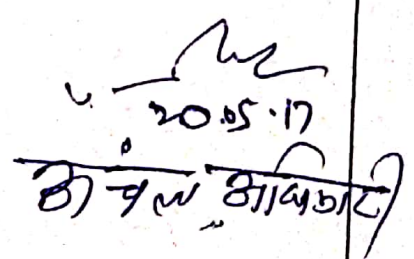 20.05.17
अंचल अधिकारी